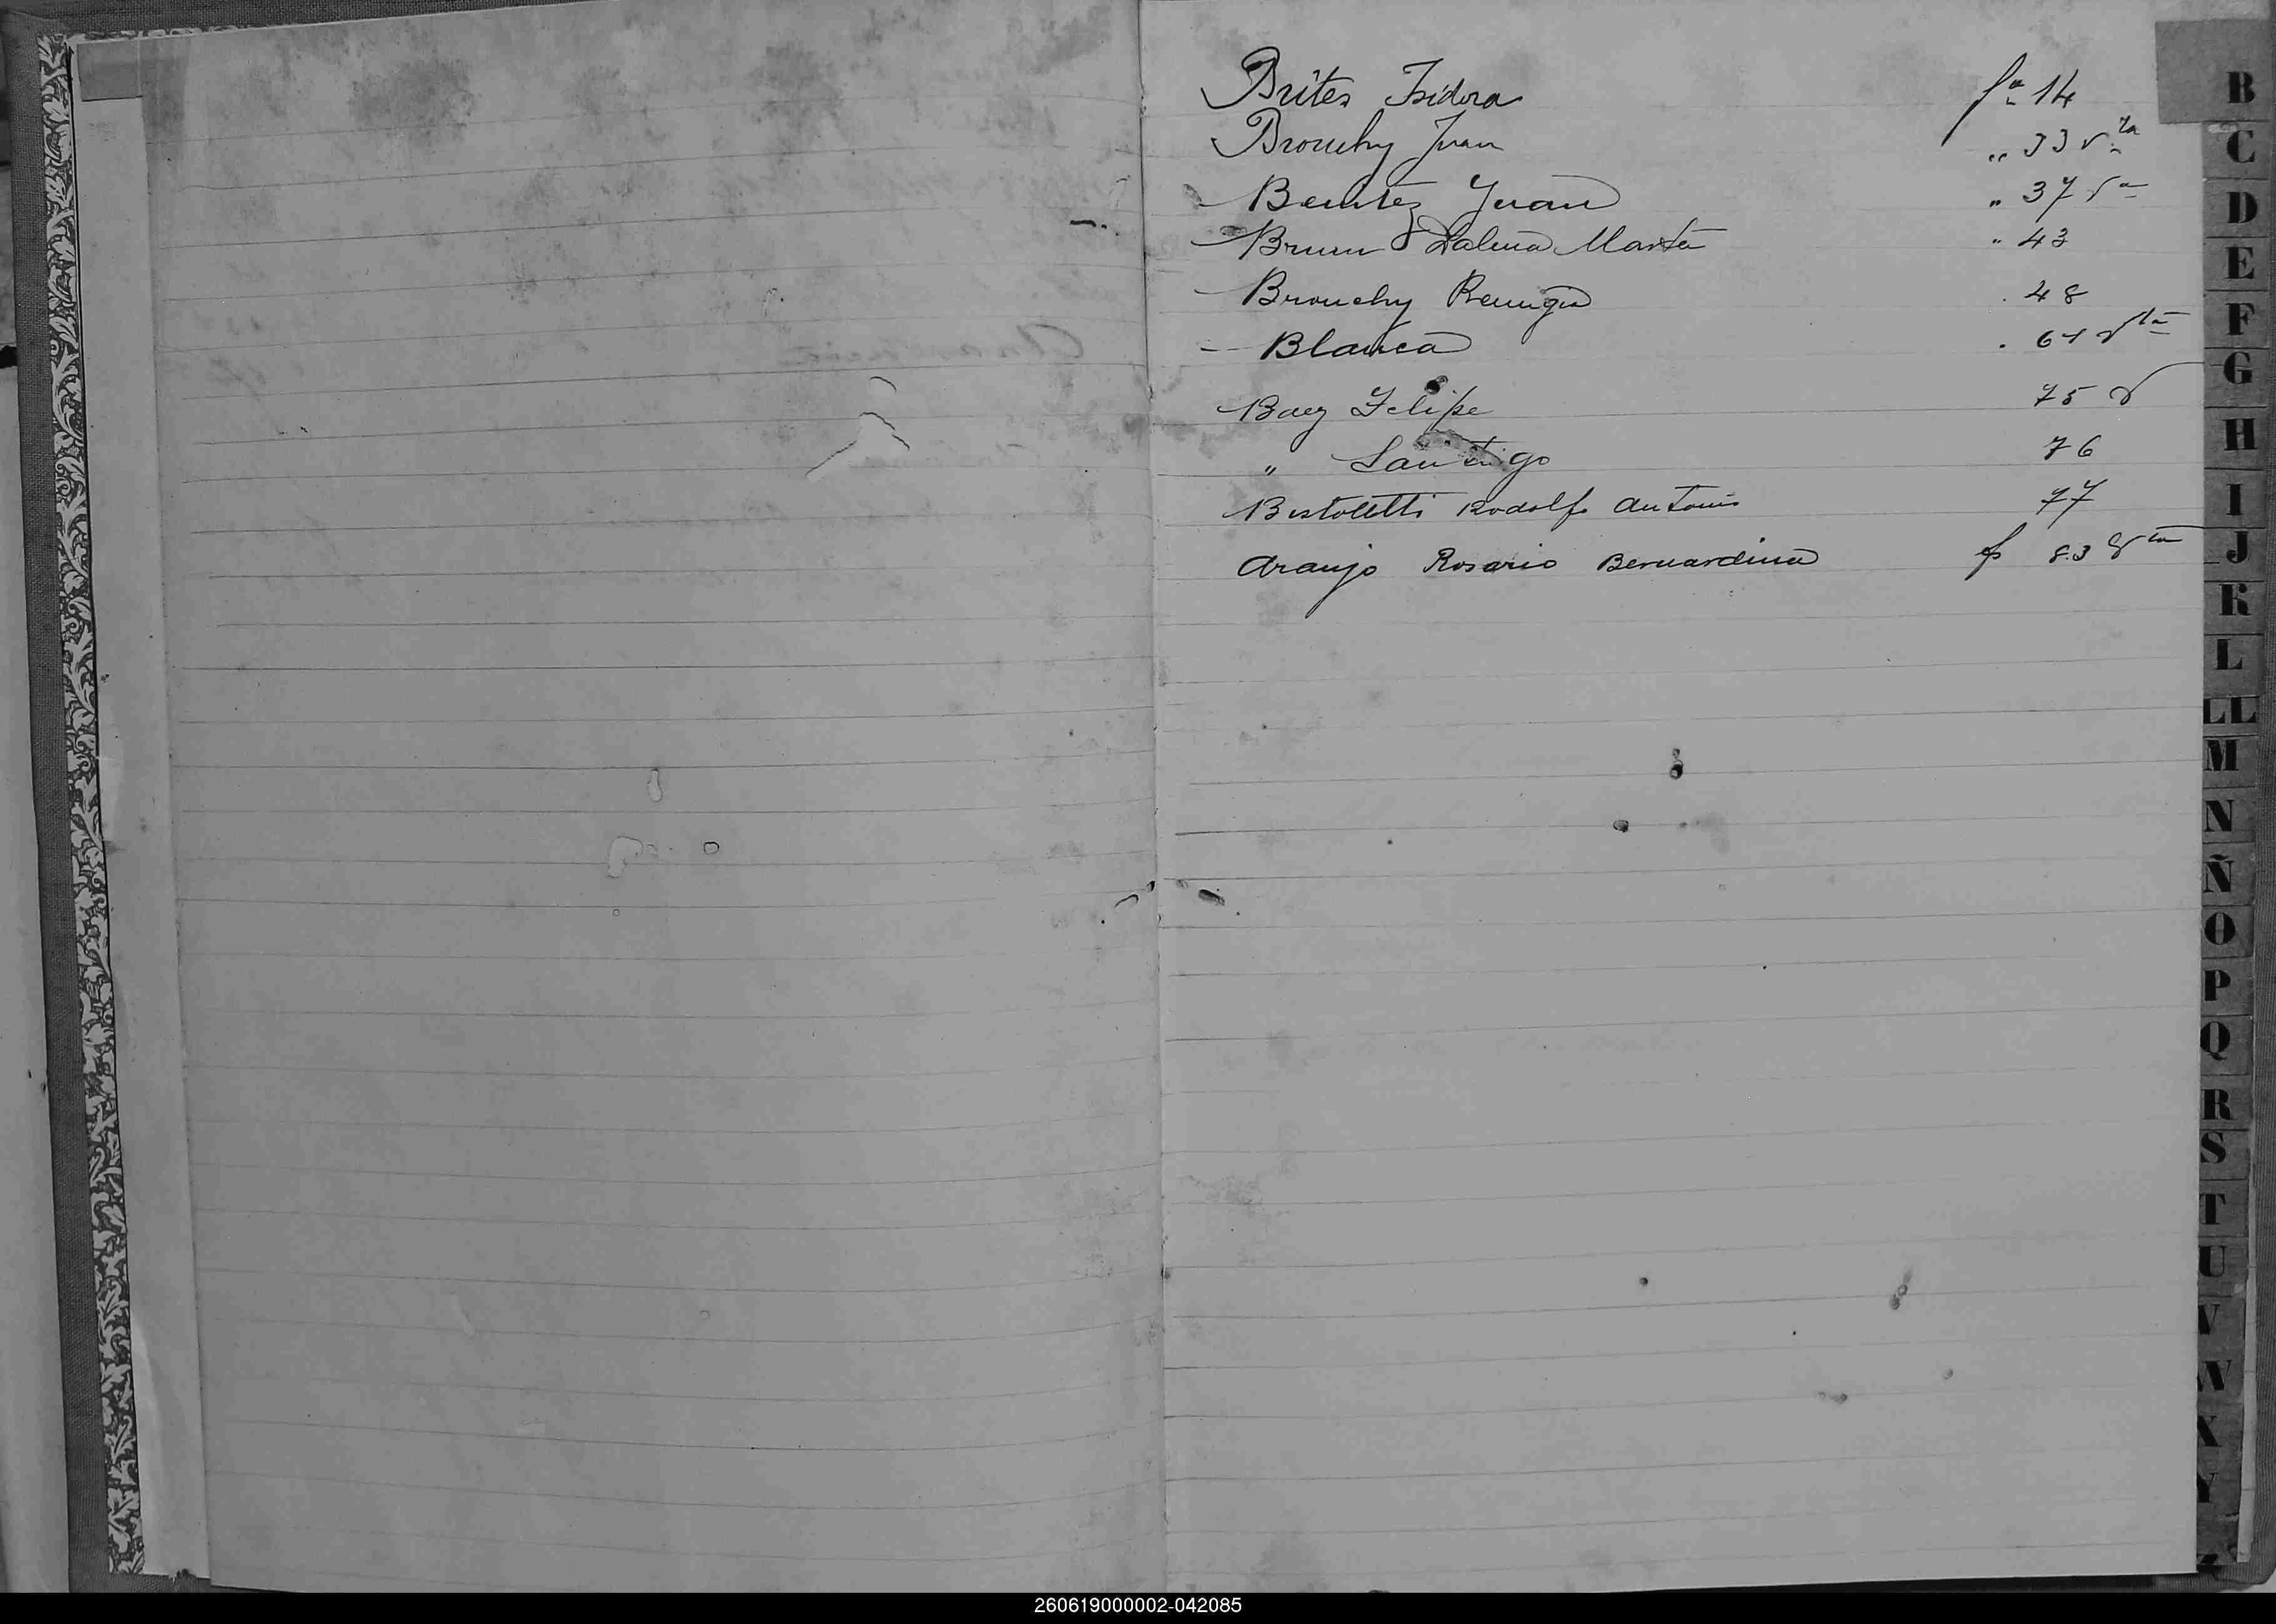 Brites Isidora fª 14
Brouchy Juan " 33 vta
Benitez Juan " 37 va
Brum Dalina Marta " 43
Brouchy Remigio . 48
Blanca . 61 vta
Baez Felipe 75 v
" Santiago 76
Bistoletti Rodolfo Antonio 77
Araujo Rosario Bernardina fs 83 vta
B
C
D
E
F
G
H
I
J
K
L
LL
M
N
Ñ
O
P
Q
R
S
T
U
V
W
X
Y
260619000002-042085